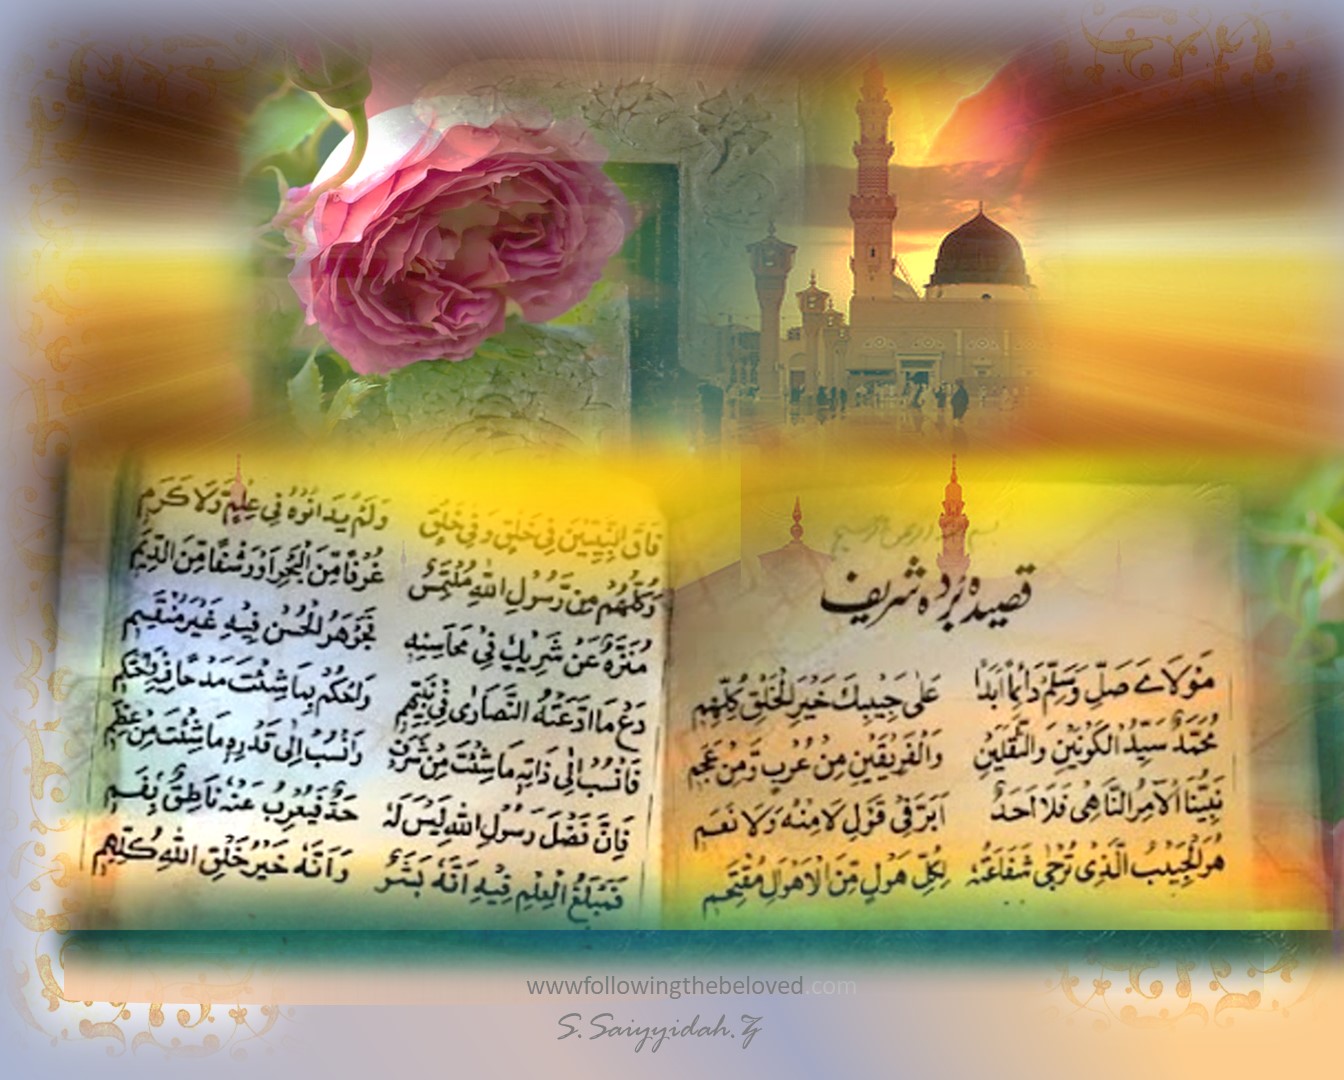 بسم الله الرحمن الرحيم
قصیده برده شریف
مَوْلَایَ صَلِّ وَسَلِّمْ دَائِمًا اَبَدًا عَلٰى حَبِيبِكَ خَيْرِ الْخَلْقِ كُلِّهِمِ
مُحَمَّدٌ سَيِّدُ الْكَوْنَيْنِ وَالثَّقَلَيْنِ وَالْفَرِيْقَيْنِ مِنْ عُرْبٍ وَّمِنْ عَجَمِ
نَبِيُّنَا الْاٰمِرُ النَّاهِى فَلَا اَحَدٌ اَبَرَّ فِى قَوْلِ لَا مِنْهُ وَلَا نَعَمِ
هُوَ الْحَبِيْبُ الَّذِىْ تُرْجٰى شَفَاعَتُهٗ لِكُلِّ هَوْلٍ مِّنَ الْاَهْوَالِ مُقْتَحِمِ
فَاقَ النَّبِيّٖنَ فِى خَلْقٍ وَّفِى خُلُقٍ وَلَمْ يُدَانُوْهُ فِى عِلْمٍ وَّلَا كَرَمِ
وَكُلُّهُمْ مِنْ رَّسُوْلِ اللهِ مُلْتَمِسٌ غَرْفًا مِّنَ الْبَحْرِ اَوْ رَشْفًا مِّنَ الدِّيَمِ
مُنَزَّهٌ عَنْ شَرِيْكٍ فِىْ مَحَاسِنِهٖ فَجَوْهَرُ الْحُسْنِ فِيْهِ غَيْرُ مُنْقَسِمِ
دَعْ مَا ادَّعَتْهُ النَّصَارٰى فِىْ نَبِيِّهِمِ وَاحْكُمْ بِمَا شِئْتَ مَدْحًا فِيْهِ وَاحْتَكِمِ
فَانْسُبْ اِلٰى ذَاتِهٖ مَا شِئْتَ مِنْ شَرَفٍ وَانْسُبْ اِلٰى قَدْرِهٖ مَا شِئْتَ مِنْ عِظَمِ
فَاِنَّ فَضْلَ رَسُوْلِ اللهِ لَيْسَ لَهٗ حَدٌّ فَيُعْرِبُ عَنْهُ نَاطِقٌ بِفَمِ
فَمَبْلَغُ الْعِلْمِ فِيْهِ اَنَّهٗ بَشَرٌ وَاَنَّهٗ خَيْرُ خَلْقِ اللهِ كُلِّهِمِ
wwwfollowingthebeloved.com
S.Saiyyidah.Z